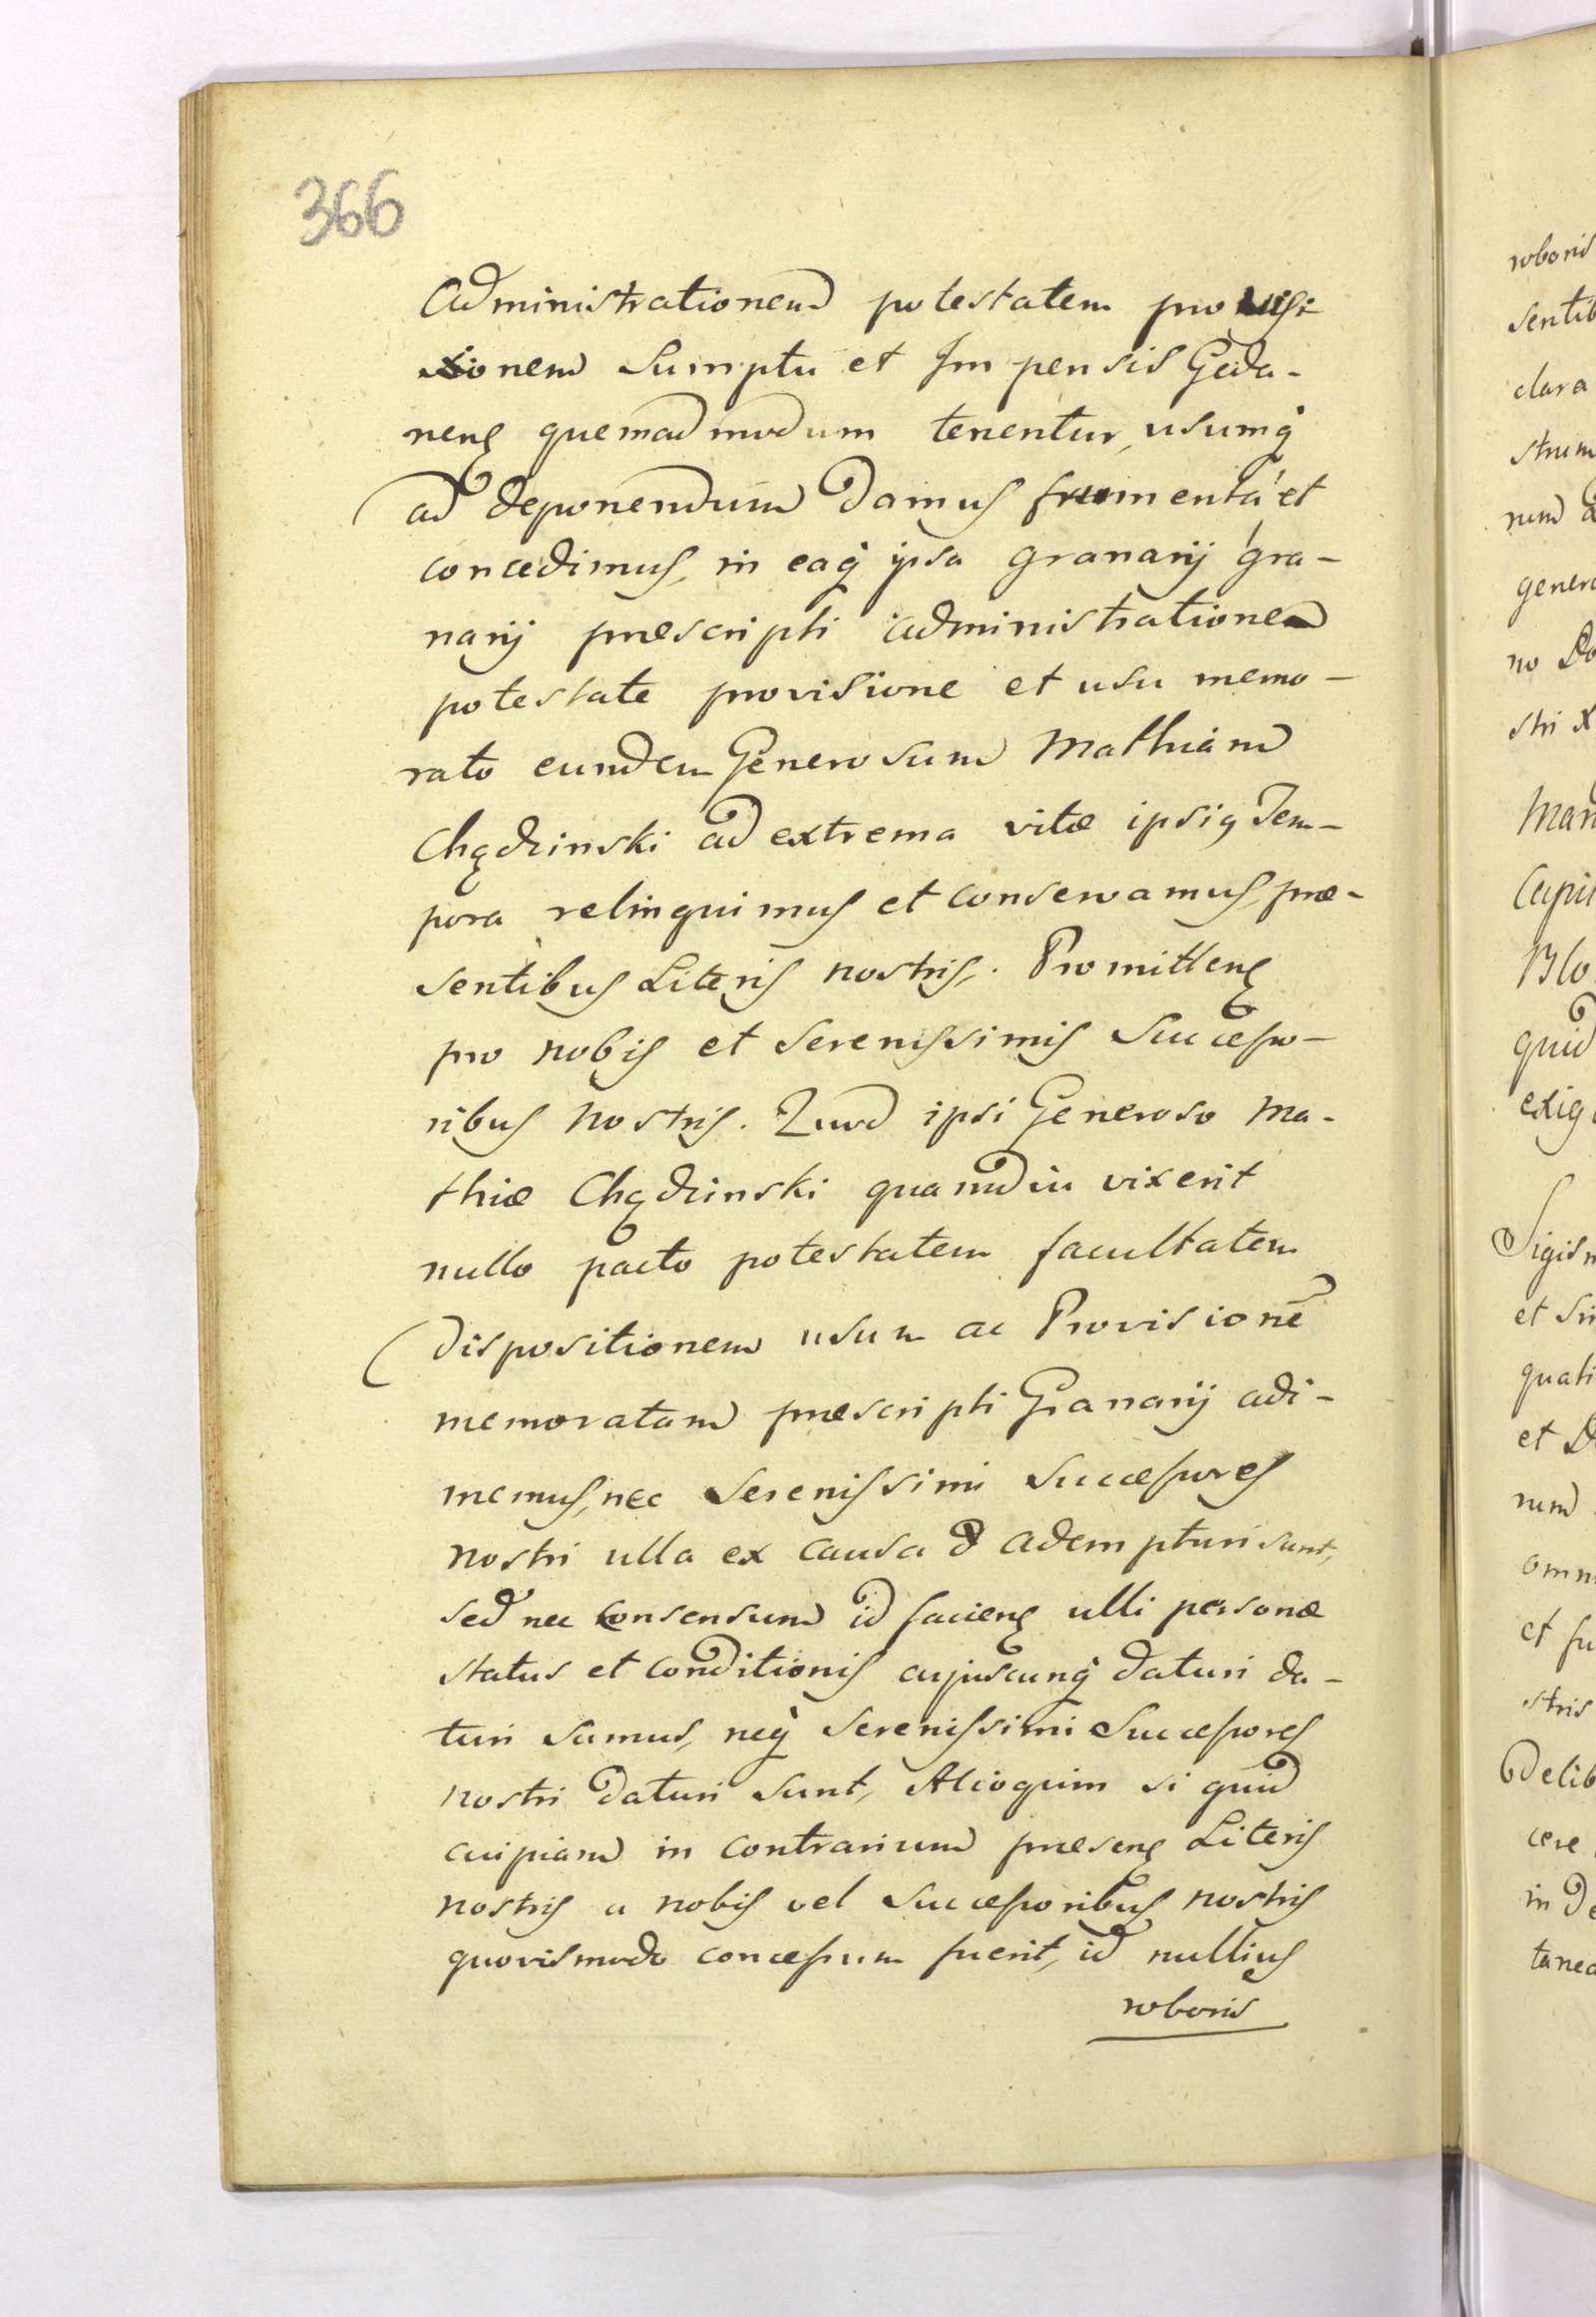 366
Administrationem potestatem provisi
sionem Sumptu et Impensis Geda-
nenς quemadmodum tenentur, usumq̃
ad deponendum Damus frumenta et
concedimus, in eaq̃ ipsa granarij gra-
narij præscripti administrationem
potestate provisione et usu memo-
rato eundem Generosum Mathiam
Chądzinski ad extrema vitæ ipsiq Tem-
pora relinquimus et conservamus, præ-
sentibus Literis nostris. Promittenς
pro nobis et Serenissimis Successo-
ribus Nostris. Quod ipsi Generoso Ma-
thiæ Chądzinski quamdiu vixerit
nullo pacto potestatem facultatem
Dispositionem usum ac Provisionē
memoratam præscripti Granarij adi-
memus, nec Serenissimi Successores
Nostri ulla ex causa adempturi sunt,
sed nec consensum id facienς ulli personæ
status et conditionis cujuscunq̃ daturi da-
turi sumus, neq̃ Serenissimi Successores
nostri daturi sunt, Alioquim si quid
cuipiam in contrarium præsenς Literis
nostris a nobis vel Successoribus nostris
quovismodo concessum fuerit, id nullius
roboris
roboris
sentib
clara
strum
num
genero
no Do
stri X
Man
Capit
Blo
quid
exig
Sigism
et
quati
et D
num
omn
et fu
stris
Delib
cere
in De
tanea